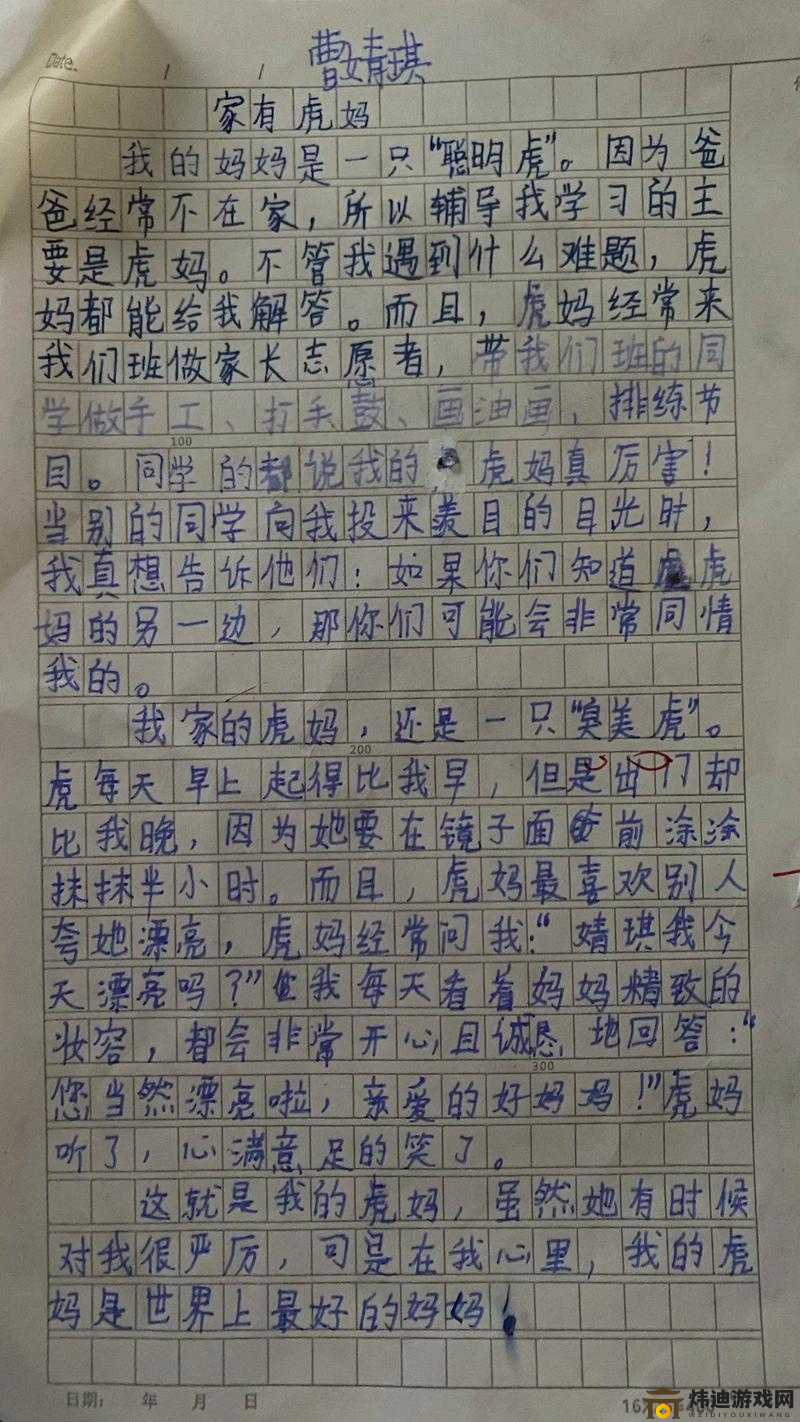 Date.   /   /
曹婧琪
家有虎妈
我的妈妈是一只“聪明虎”。因为爸
爸经常不在家，所以辅导我学习的主
要是虎妈。不管我遇到什么难题，虎
妈都能给我解答。而且，虎妈经常来
我们班做家长志愿者，带我们班的同
学做手工、打手鼓、画油画，排练节
100
目。同学的都说我的虎妈真厉害！
当别的同学向我投来羡目的目光时，
我真想告诉他们：如果你们知道虎
妈的另一边，那你们可能会非常同情
我的。
我家的虎妈，还是一只“臭美虎”。
200
虎每天早上起得比我早，但是出门却
比我晚，因为她要在镜子面前涂涂
抹抹半小时。而且，虎妈最喜欢别人
夸她漂亮，虎妈经常问我：“婧琪我今
天漂亮吗？”我每天看着妈妈精致的
妆容，都会非常开心且诚恳地回答：“
300
您当然漂亮啦，亲爱的好妈妈！”虎妈
听了，心满意足的笑了。
这就是我的虎妈，虽然她有时候
对我很严厉，可是在我心里，我的虎
妈是世界上最好的妈妈！
日期： 年 月 日
炜迪游戏网
WEIDIYOUXIWANG